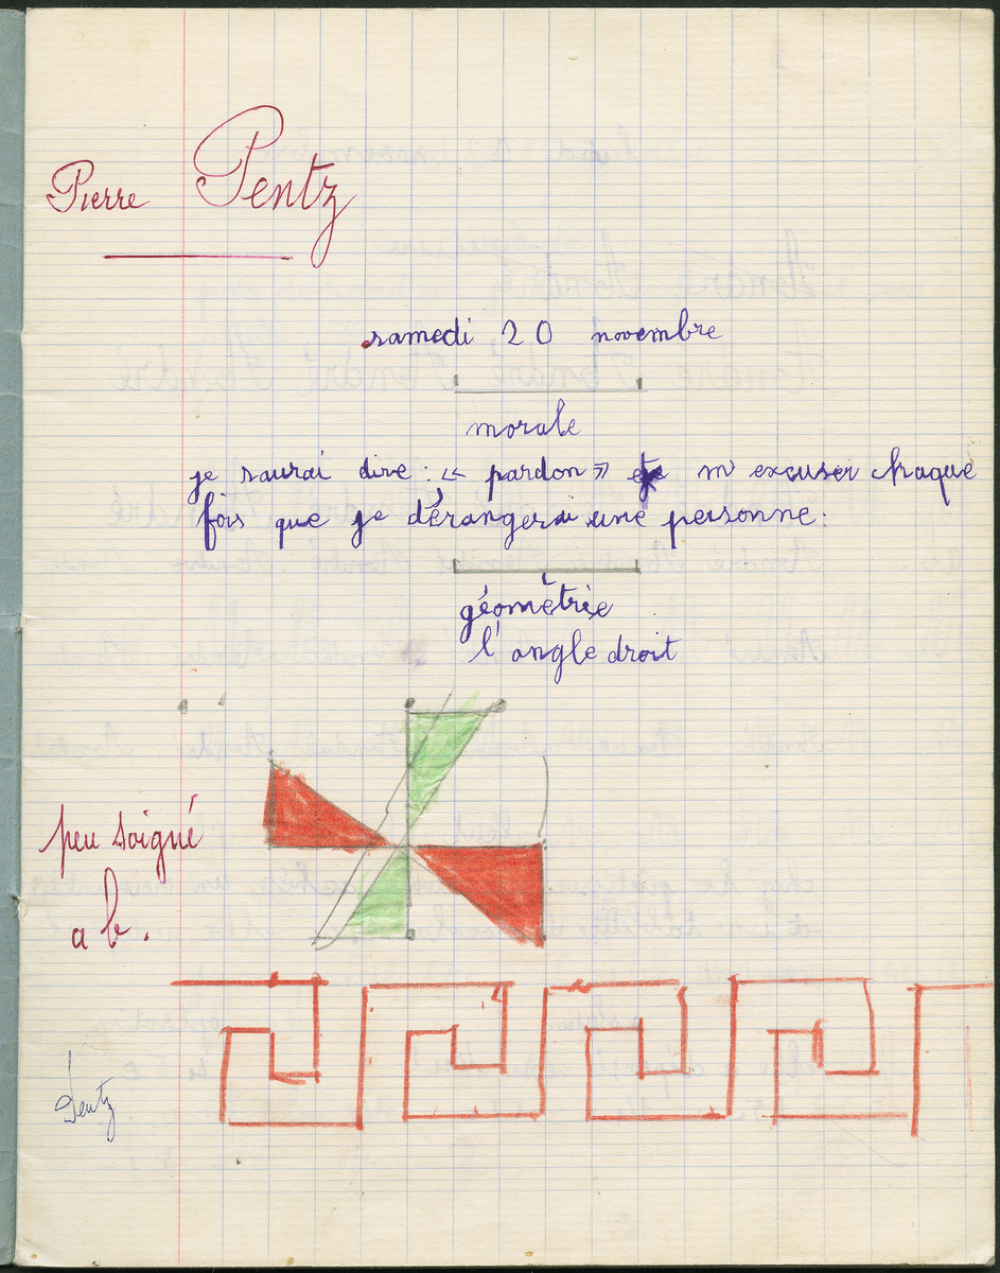 Pierre Pentz
samedi 20 novembre
morale
je saurai dire : « pardon » et m'excuser chaque
fois que je dérangerai une personne.
géométrie
l'angle droit
peu soigné
a b.
Pentz